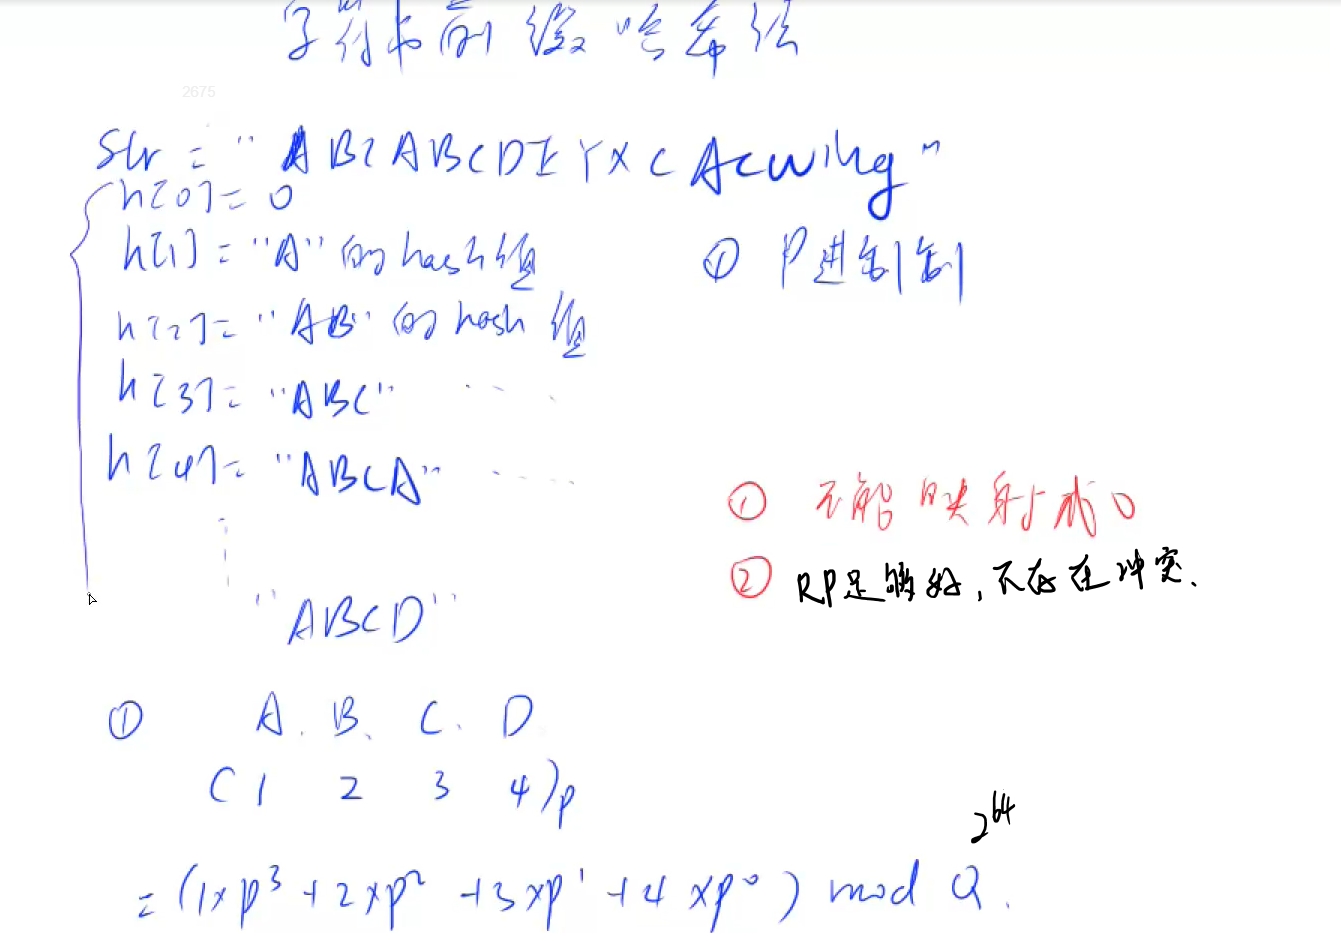 字符串前缀哈希法
2675
Str = "ABCABCDEYXCAcwing"
h[0] = 0
h[1] = "A" 的 hash 值
① P进制制
h[2] = "AB" 的 hash 值
h[3] = "ABC" ....
h[4] = "ABCA" ....
① 不能映射成0
② RP足够好,不存在冲突.
"ABCD"
① A. B. C. D
(1 2 3 4)p
2^64
= (1×p³ + 2×p² + 3×p¹ + 4×p⁰) mod Q.